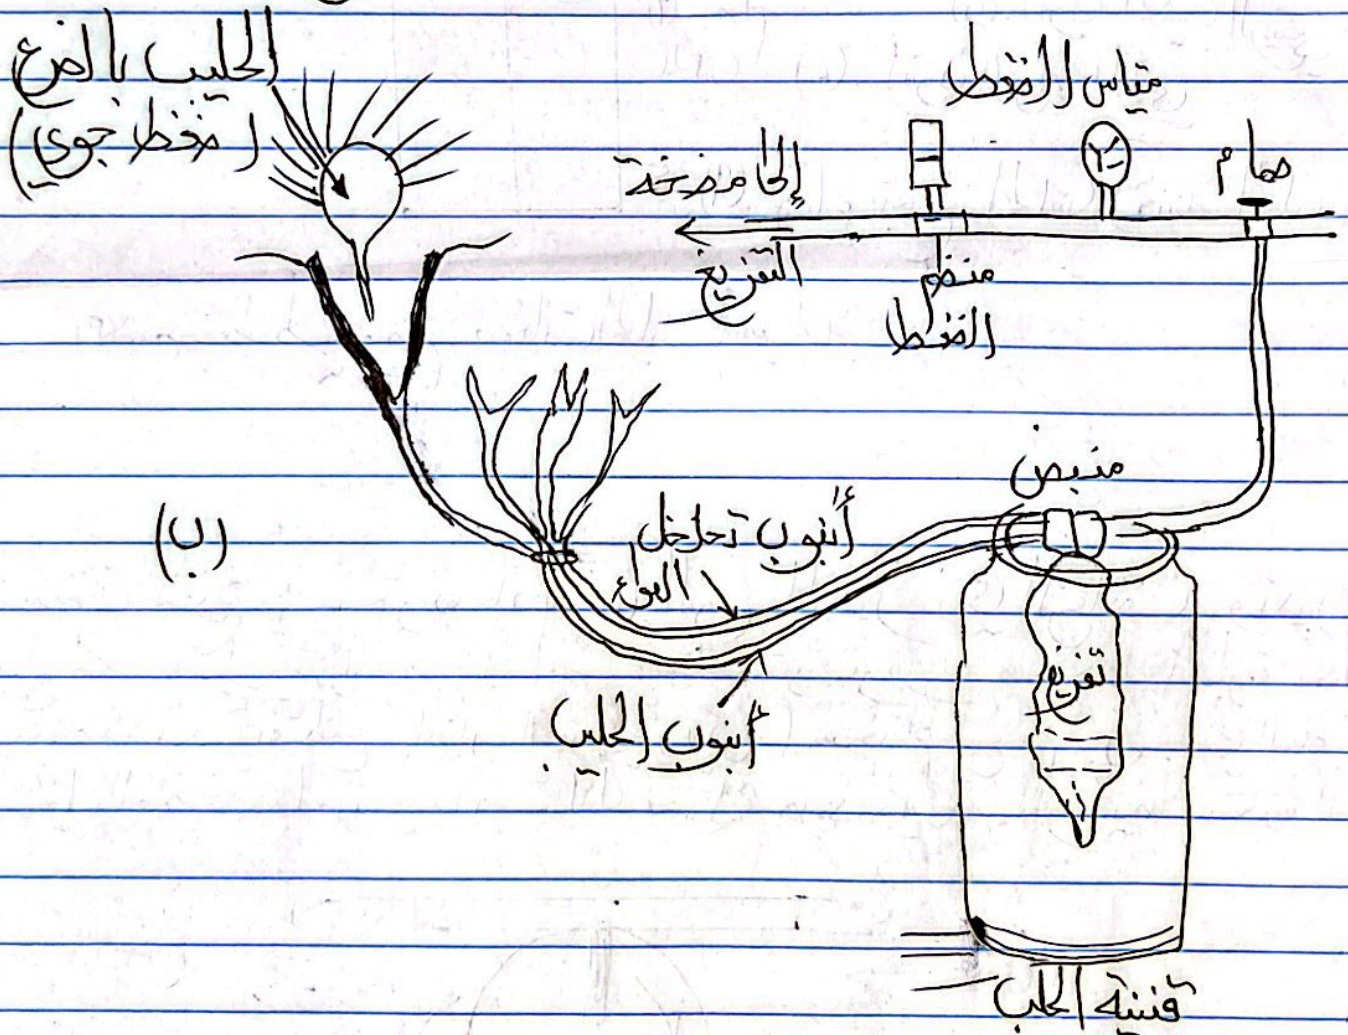 الحليب بالضرع
(ضغط جوي)
مقياس الضغط
صمام
إلى مضخة
التفريغ
منظم
الضغط
منبض
(ب)
أنبوب تخلخل
الهواء
أنبوب الحليب
تفريغ
قنينة الحلب